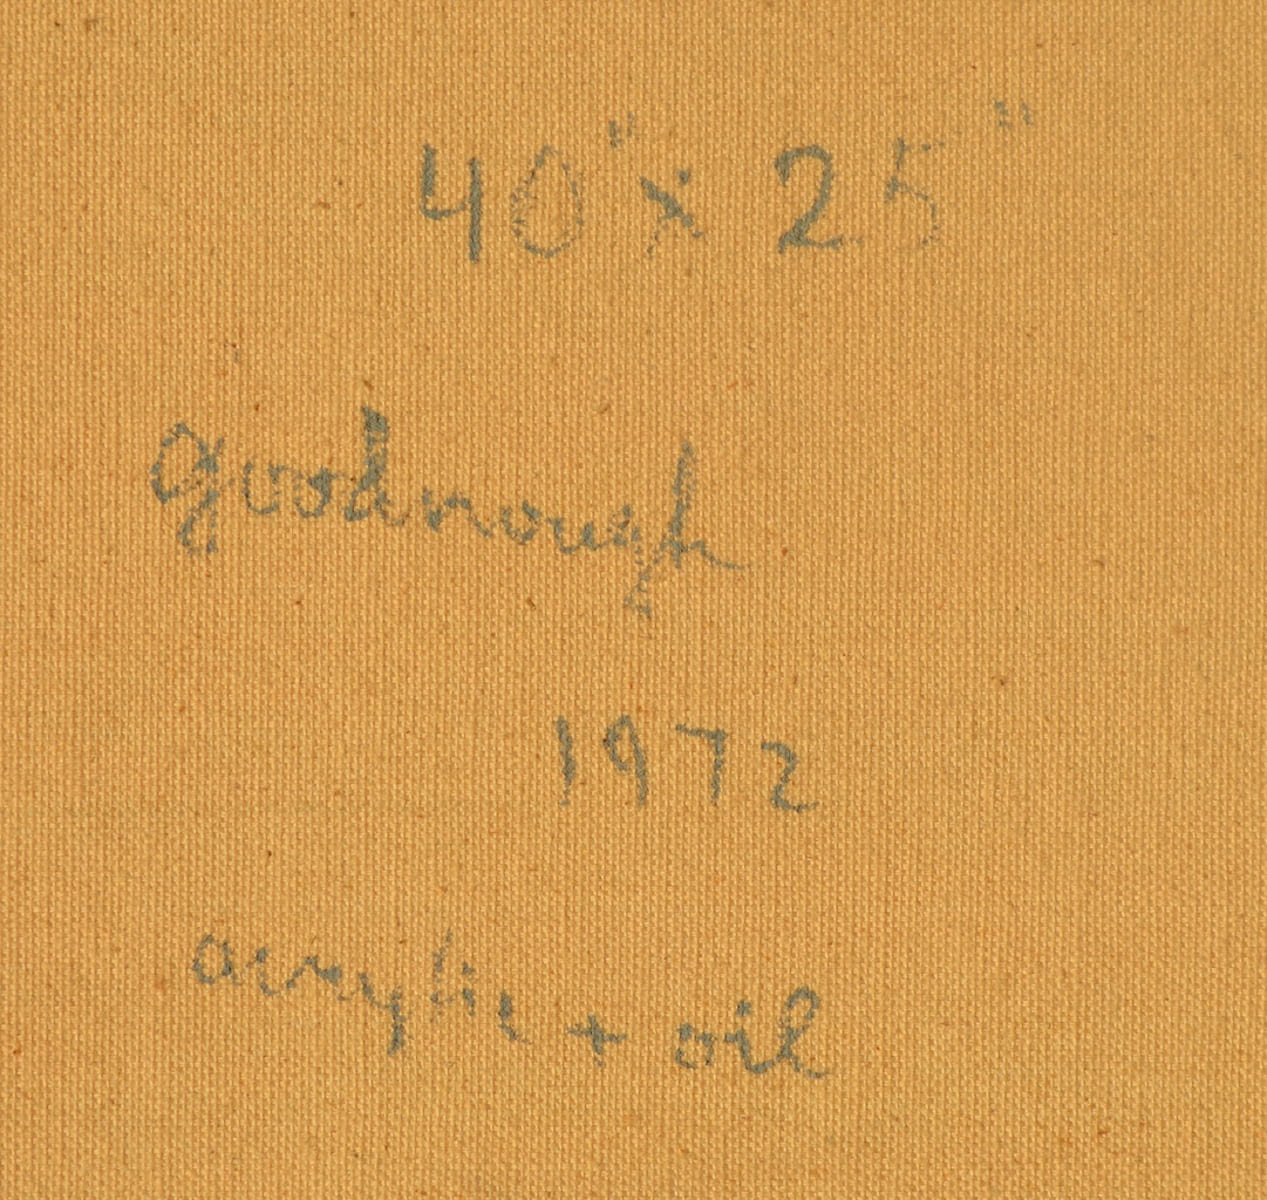 40" x 25"
goodnough
1972
acrylic + oil